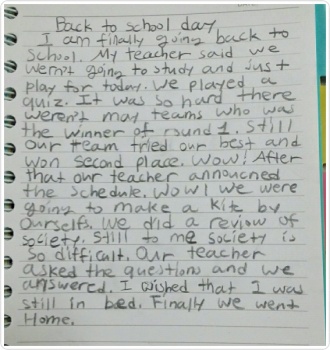 Back to school day
I am finally going back to
school. My teacher said we
wernt going to study and just
play for today. We played a
quiz. It was so hard there
weren't may teams who was
the winner of round 1. Still
our team tried our best and
won second place. Wow! After
that our teacher annoucned
the schedule. Wow! we were
going to make a kite by
ourselfs. We did a reviow of
society. Still to me society is
so difficult. Our teacher
asked the questions and we
answered. I wished that I was
still in bed. Finally we went
Home.